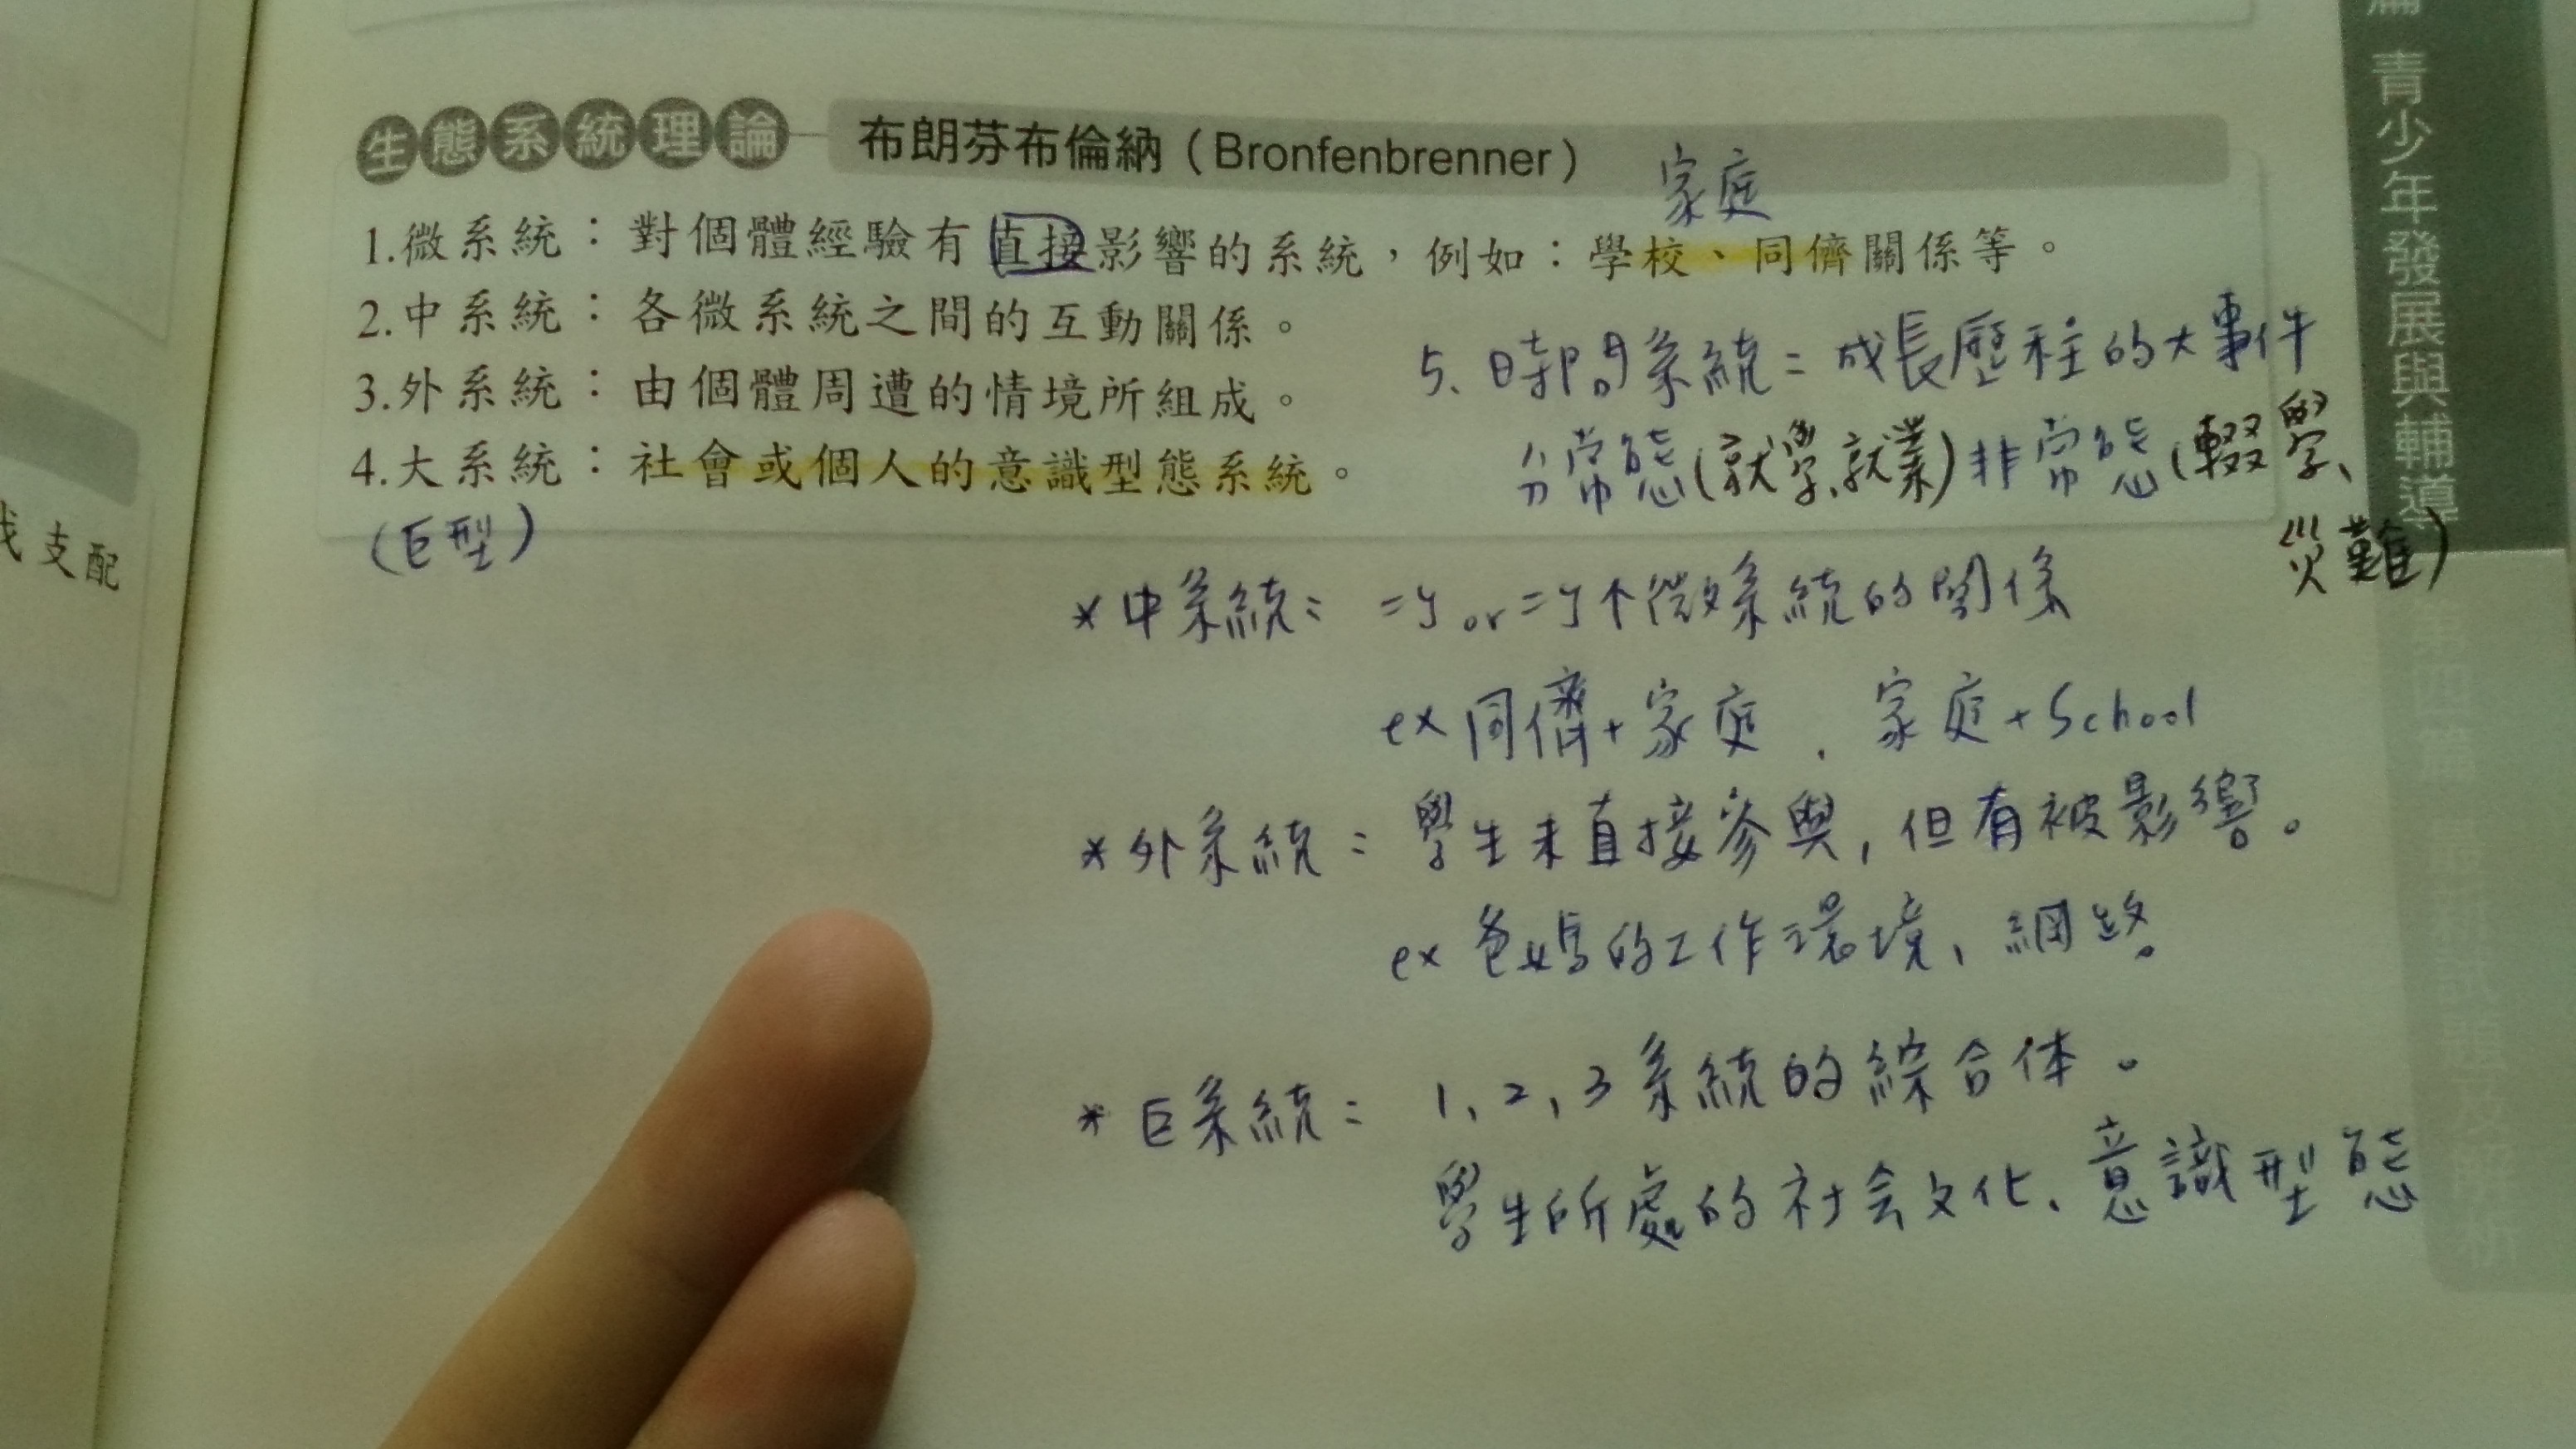 生態系統理論 布朗芬布倫納（Bronfenbrenner）
家庭
1.微系統：對個體經驗有直接影響的系統，例如：學校、同儕關係等。
2.中系統：各微系統之間的互動關係。
3.外系統：由個體周遭的情境所組成。
4.大系統：社會或個人的意識型態系統。
(巨型)
5、時間系統=成長歷程的大事件
分常態(就學、就業)非常態(輟學、
災難)
*中系統: =y or =y个微系統的關係
ex 同儕+家庭、家庭+School
*外系統: 學生未直接參與,但有被影響。
ex 爸媽的工作環境、網路。
*巨系統: 1、2、3系統的綜合体。
學生所處的社会文化、意識型態
篇 青少年發展與輔導
支配